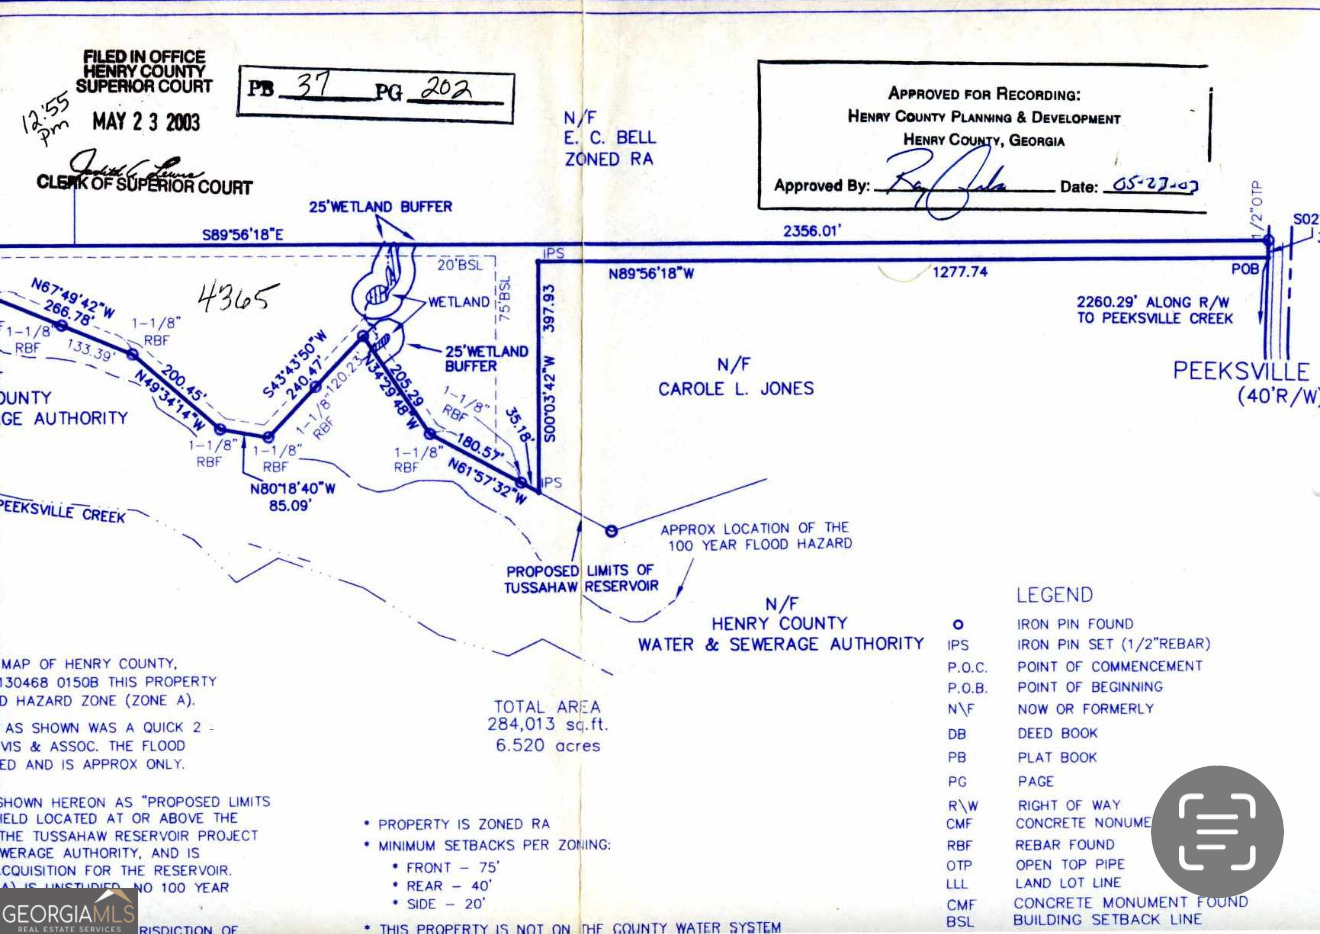 FILED IN OFFICE
HENRY COUNTY
SUPERIOR COURT
12:55
pm
MAY 23 2003
CLERK OF SUPERIOR COURT
PB 37 PG 202
N/F
E. C. BELL
ZONED RA
APPROVED FOR RECORDING:
HENRY COUNTY PLANNING & DEVELOPMENT
HENRY COUNTY, GEORGIA
Approved By: Date: 05-27-03
1/2"OTP
S02
25'WETLAND BUFFER
S89°56'18"E
2356.01'
IPS
20'BSL
75'BSL
N89°56'18"W
1277.74
POB
N67°49'42"W
266.78'
4365
WETLAND
397.93
S00°03'42"W
2260.29' ALONG R/W
TO PEEKSVILLE CREEK
1-1/8"
RBF
133.39'
1-1/8"
RBF
S43°43'50"W
240.47'
120.23'
1-1/8"
RBF
25'WETLAND
BUFFER
N/F
CAROLE L. JONES
PEEKSVILLE
(40'R/W)
200.45'
N49°34'14"W
205.29
N34°29'48"W
1-1/8"
RBF
35.18'
OUNTY
GE AUTHORITY
1-1/8"
RBF
1-1/8"
RBF
1-1/8"
RBF
180.57'
N61°57'32"W
IPS
N80°18'40"W
85.09'
PEEKSVILLE CREEK
APPROX LOCATION OF THE
100 YEAR FLOOD HAZARD
PROPOSED LIMITS OF
TUSSAHAW RESERVOIR
N/F
HENRY COUNTY
WATER & SEWERAGE AUTHORITY
MAP OF HENRY COUNTY,
130468 0150B THIS PROPERTY
D HAZARD ZONE (ZONE A).
AS SHOWN WAS A QUICK 2 -
VIS & ASSOC. THE FLOOD
ED AND IS APPROX ONLY.
SHOWN HEREON AS "PROPOSED LIMITS
IELD LOCATED AT OR ABOVE THE
THE TUSSAHAW RESERVOIR PROJECT
WERAGE AUTHORITY, AND IS
CQUISITION FOR THE RESERVOIR.
A) IS UNSTUDIED, NO 100 YEAR
RISDICTION OF
TOTAL AREA
284,013 sq.ft.
6.520 acres
* PROPERTY IS ZONED RA
* MINIMUM SETBACKS PER ZONING:
* FRONT – 75'
* REAR – 40'
* SIDE – 20'
* THIS PROPERTY IS NOT ON THE COUNTY WATER SYSTEM
LEGEND
o IRON PIN FOUND
IPS IRON PIN SET (1/2"REBAR)
P.O.C. POINT OF COMMENCEMENT
P.O.B. POINT OF BEGINNING
N\F NOW OR FORMERLY
DB DEED BOOK
PB PLAT BOOK
PG PAGE
R\W RIGHT OF WAY
CMF CONCRETE NONUME
RBF REBAR FOUND
OTP OPEN TOP PIPE
LLL LAND LOT LINE
CMF CONCRETE MONUMENT FOUND
BSL BUILDING SETBACK LINE
GEORGIAMLS
REAL ESTATE SERVICES